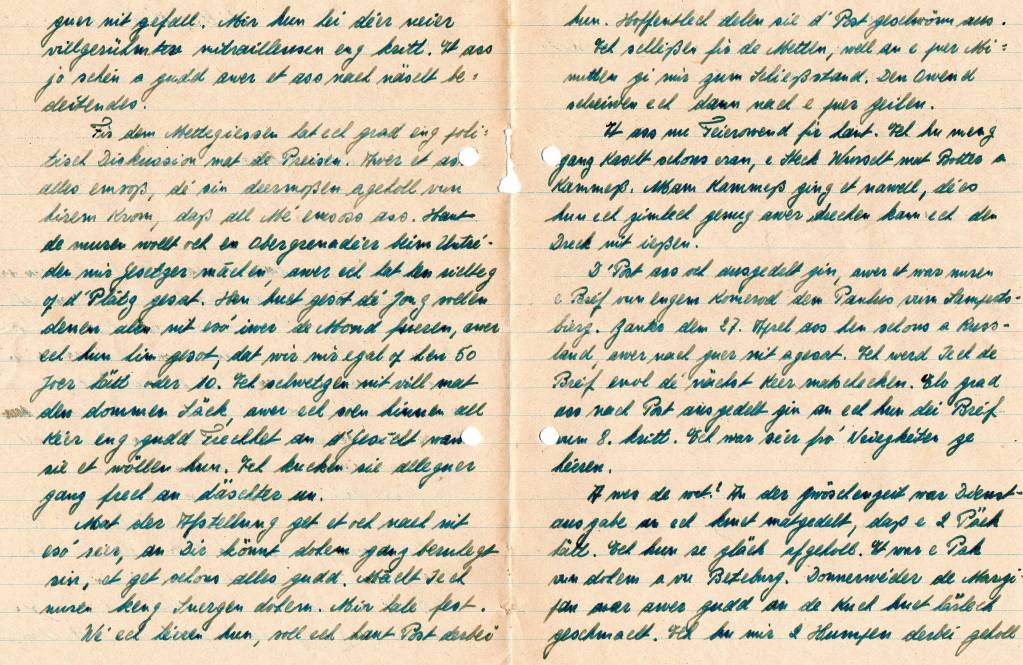 guer nit gefall. Mir hun hei déer neier
villgerühmten mitrailleusen eng kritt. Et ass
jo schéin a gudd awer et ass nach näscht be-
deitendes.
Fir dem Mettegiessen hat ech grad eng poli-
tisch Diskussion mat de Preisen. Awer et ass
alles emsoß, dé sin deermoßen ageholl vun
hirem Krom, daß all Mé emsoss ass. Haut
de muren wollt och en Obergrenadéer beim Untri-
den mir Gesetzer máchen, awer ech hat hen séelteg
op d'Plätz gesat. Hen huet gesot dé Jong sollen
denen alen nit esó iwer de Mond fueren, awer
ech hun him gesot, dat wir mir egal op hen 50
Joer hätt oder 10. Ech schwetzen nit vill mat
den dommen Säck, awer ech soen hinnen all
Kéier eng gudd Fiechtet an d'Gesicht wann
sie et wöllen hun. Ech kucken sie alleguer
gang frech an däschter un.
Mat der Afstellung get et och nach nit
esó séier, an Dir könnt dohem gang berulegt
sin, et get schons alles gudd. Mácht Iech
nuren keng Suergen dohem. Mir hale fest.
Wé ech héieren hun, soll ech haut Post derbéi
hun. Hoffentlech delen sie d'Post geschwönn aus.
Ech schlißen fir de Metten, well an e puer Mi-
nutten gi mir zum Schießstand. Den Owend
schreiwen ech dann nach e puer Zeilen.
Et ass nu Feierowend fir haut. Ech hu meng
gang Kaselt schons eran, e Steck Wurscht mat Botter a
Kammeß. Mam Kammeß ging et nawell, déés
hun ech zimlech genug awer drechen kann ech den
Dreck nit ießen.
D'Post ass och ausgedelt gin, awer et war nuren
e Bréf vun engem Komerod dem Paulus vum Lamperts-
bierg. Zanks dem 27. Aprel ass hen schons a Russ-
land, awer nach guer nit agesat. Ech werd Iech de
Bréif envl dé nächst Keer matschecken. Elo grad
ass nach Post ausgedelt gin an ech hun déi Bréf
vum 8. kritt. Ech war séier fró Neiegkéiten ze
héieren.
A wes de wat! An der Zwöschenzeit war Dienst-
ausgabe an ech kruet matgedelt, daß e 2 Päck
hätt. Ech hun se gläch ofgeholl. Et war e Pak
vun dohem a vu Beteburg. Donnerwéder de Marzi-
pan war awer gudd an de Kuch huet härlech
geschmacht. Ech hu mir 2 Humpen derbéi geholl